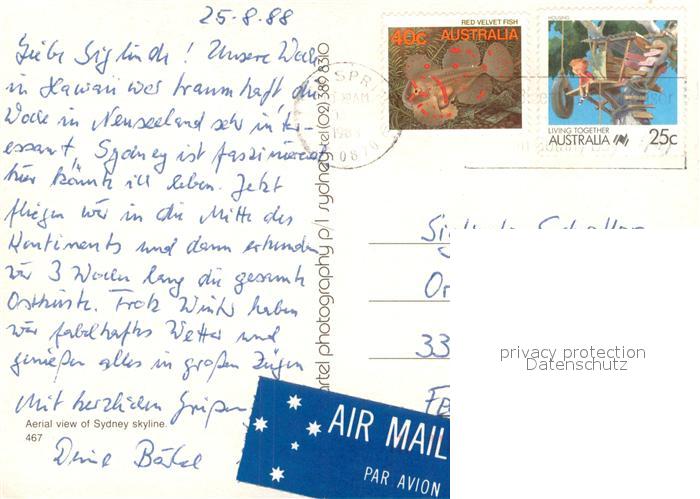 25-8-88
Liebe Siglinde! Unsere Woche
in Hawaii war traumhaft die
Woche in Neuseeland sehr inter-
essant, Sydney ist faszinierend
hier könnte ich leben. Jetzt
fliegen wir in die Mitte des
Kontinents und dann erkunden
wir 3 Wochen lang die gesamte
Ostküste. Trotz Winter haben
wir fabelhaftes Wetter und
genießen alles in großen Zügen
Mit herzlichen Grüßen
Aerial view of Sydney skyline.
467
Deine
artel photography p/l sydney tel (02) 389 8310
RED VELVET FISH
40c AUSTRALIA
HOUSING
LIVING TOGETHER
AUSTRALIA 25c
SPRI
1988
0870
33
privacy protection
Datenschutz
AIR MAIL
PAR AVION